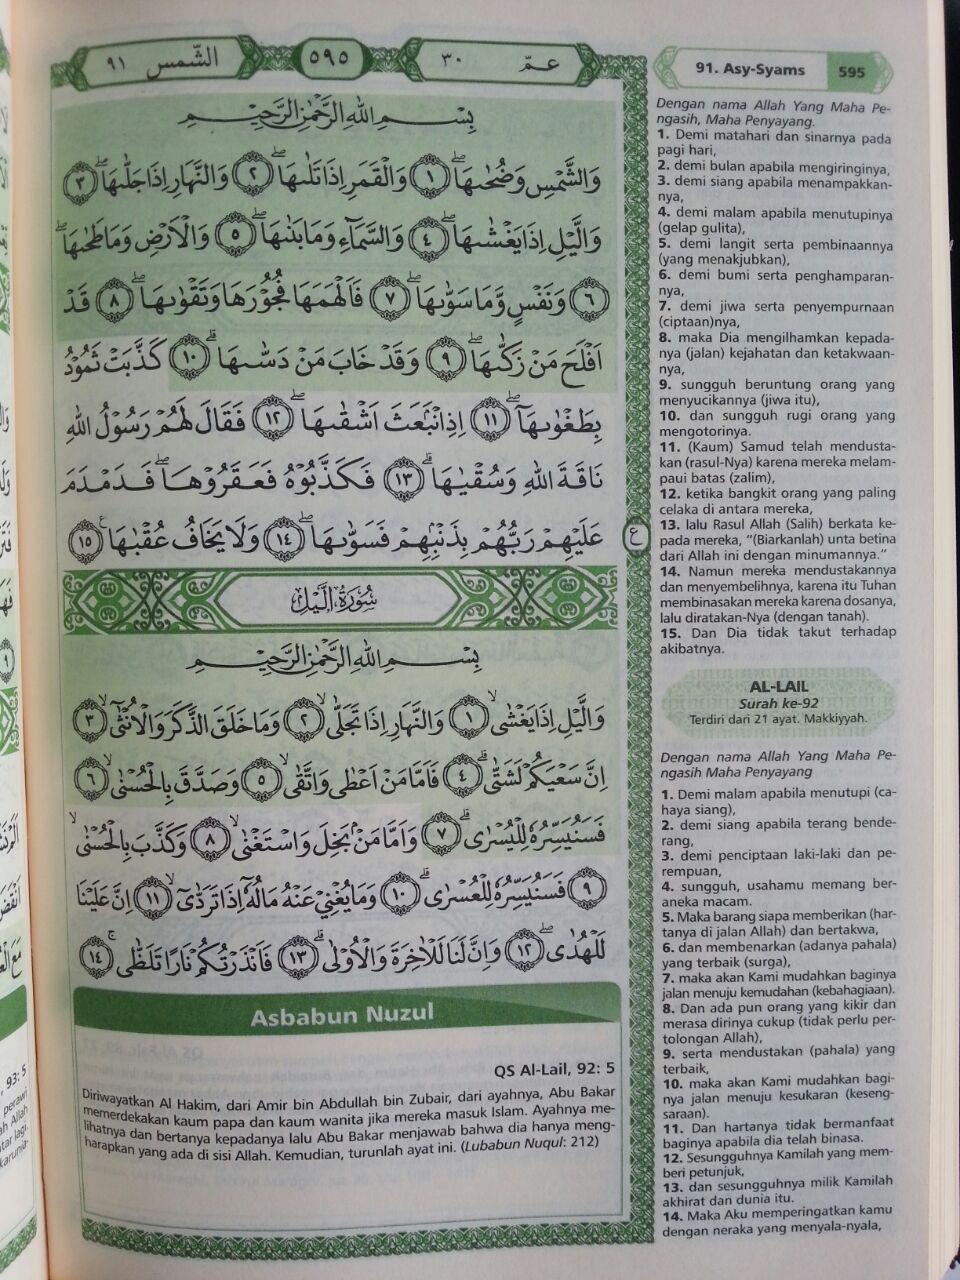 الشّمس ٩١
٥٩٥
عـمّ ٣٠
بِسْمِ اللهِ الرَّحْمٰنِ الرَّحِيْمِ
وَالشَّمْسِ وَضُحٰىهَاۖ ١ وَالْقَمَرِ اِذَا تَلٰىهَاۖ ٢ وَالنَّهَارِ اِذَا جَلّٰىهَاۖ ٣
وَالَّيْلِ اِذَا يَغْشٰىهَاۖ ٤ وَالسَّمَاۤءِ وَمَا بَنٰىهَاۖ ٥ وَالْاَرْضِ وَمَا طَحٰىهَاۖ
٦ وَنَفْسٍ وَّمَا سَوّٰىهَاۖ ٧ فَاَلْهَمَهَا فُجُوْرَهَا وَتَقْوٰىهَاۖ ٨ قَدْ
اَفْلَحَ مَنْ زَكّٰىهَاۖ ٩ وَقَدْ خَابَ مَنْ دَسّٰىهَاۗ ١٠ كَذَّبَتْ ثَمُوْدُ
بِطَغْوٰىهَآ ۖ ١١ اِذِ انْۢبَعَثَ اَشْقٰىهَاۖ ١٢ فَقَالَ لَهُمْ رَسُوْلُ اللهِ
نَاقَةَ اللهِ وَسُقْيٰهَاۗ ١٣ فَكَذَّبُوْهُ فَعَقَرُوْهَاۖ فَدَمْدَمَ
عَلَيْهِمْ رَبُّهُمْ بِذَنْۢبِهِمْ فَسَوّٰىهَاۖ ١٤ وَلَا يَخَافُ عُقْبٰهَا ࣖ ١٥
ع
سُوْرَةُ الَّيْلِ
بِسْمِ اللهِ الرَّحْمٰنِ الرَّحِيْمِ
وَالَّيْلِ اِذَا يَغْشٰىۙ ١ وَالنَّهَارِ اِذَا تَجَلّٰىۙ ٢ وَمَا خَلَقَ الذَّكَرَ وَالْاُنْثٰىٓ ۙ ٣
اِنَّ سَعْيَكُمْ لَشَتّٰىۗ ٤ فَاَمَّا مَنْ اَعْطٰى وَاتَّقٰىۙ ٥ وَصَدَّقَ بِالْحُسْنٰىۙ ٦
فَسَنُيَسِّرُهٗ لِلْيُسْرٰىۗ ٧ وَاَمَّا مَنْۢ بَخِلَ وَاسْتَغْنٰىۙ ٨ وَكَذَّبَ بِالْحُسْنٰىۙ
٩ فَسَنُيَسِّرُهٗ لِلْعُسْرٰىۗ ١٠ وَمَا يُغْنِيْ عَنْهُ مَالُهٗٓ اِذَا تَرَدّٰىٓ ۙ ١١ اِنَّ عَلَيْنَا
لَلْهُدٰىۖ ١٢ وَاِنَّ لَنَا لَلْاٰخِرَةَ وَالْاُوْلٰىۗ ١٣ فَاَنْذَرْتُكُمْ نَارًا تَلَظّٰىۚ ١٤
Asbabun Nuzul
QS Al-Lail, 92: 5
Diriwayatkan Al Hakim, dari Amir bin Abdullah bin Zubair, dari ayahnya, Abu Bakar
memerdekakan kaum papa dan kaum wanita jika mereka masuk Islam. Ayahnya me-
lihatnya dan bertanya kepadanya lalu Abu Bakar menjawab bahwa dia hanya meng-
harapkan yang ada di sisi Allah. Kemudian, turunlah ayat ini. (Lubabun Nuqul: 212)
91. Asy-Syams 595
Dengan nama Allah Yang Maha Pe-
ngasih, Maha Penyayang.
1. Demi matahari dan sinarnya pada
pagi hari,
2. demi bulan apabila mengiringinya,
3. demi siang apabila menampakkan-
nya,
4. demi malam apabila menutupinya
(gelap gulita),
5. demi langit serta pembinaannya
(yang menakjubkan),
6. demi bumi serta penghamparan-
nya,
7. demi jiwa serta penyempurnaan
(ciptaan)nya,
8. maka Dia mengilhamkan kepada-
nya (jalan) kejahatan dan ketakwaan-
nya,
9. sungguh beruntung orang yang
menyucikannya (jiwa itu),
10. dan sungguh rugi orang yang
mengotorinya.
11. (Kaum) Samud telah mendusta-
kan (rasul-Nya) karena mereka melam-
paui batas (zalim),
12. ketika bangkit orang yang paling
celaka di antara mereka,
13. lalu Rasul Allah (Salih) berkata ke-
pada mereka, “(Biarkanlah) unta betina
dari Allah ini dengan minumannya.”
14. Namun mereka mendustakannya
dan menyembelihnya, karena itu Tuhan
membinasakan mereka karena dosanya,
lalu diratakan-Nya (dengan tanah).
15. Dan Dia tidak takut terhadap
akibatnya.
AL-LAIL
Surah ke-92
Terdiri dari 21 ayat. Makkiyyah.
Dengan nama Allah Yang Maha Pe-
ngasih Maha Penyayang
1. Demi malam apabila menutupi (ca-
haya siang),
2. demi siang apabila terang bende-
rang,
3. demi penciptaan laki-laki dan pe-
rempuan,
4. sungguh, usahamu memang ber-
aneka macam.
5. Maka barang siapa memberikan (har-
tanya di jalan Allah) dan bertakwa,
6. dan membenarkan (adanya pahala)
yang terbaik (surga),
7. maka akan Kami mudahkan baginya
jalan menuju kemudahan (kebahagiaan).
8. Dan ada pun orang yang kikir dan
merasa dirinya cukup (tidak perlu per-
tolongan Allah),
9. serta mendustakan (pahala) yang
terbaik,
10. maka akan Kami mudahkan bagi-
nya jalan menuju kesukaran (keseng-
saraan).
11. Dan hartanya tidak bermanfaat
baginya apabila dia telah binasa.
12. Sesungguhnya Kamilah yang mem-
beri petunjuk,
13. dan sesungguhnya milik Kamilah
akhirat dan dunia itu.
14. Maka Aku memperingatkan kamu
dengan neraka yang menyala-nyala,